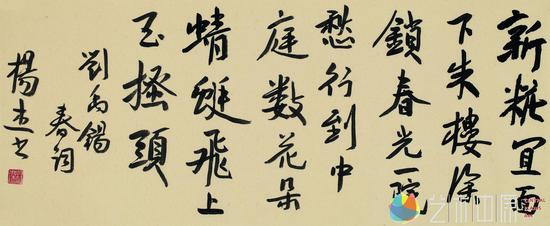 新粧宜面
下朱樓深
鎖春光一院
愁行到中
庭數花朵
蜻蜓飛上
玉搔頭
劉禹錫
春詞
楊
艺术中原